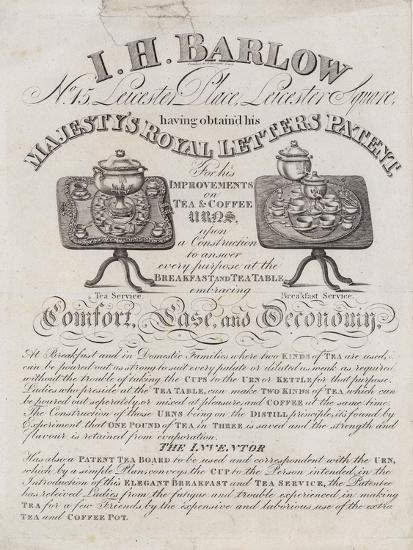 I. H. BARLOW
No. 15, Leicester Place, Leicester Square,
having obtain'd his
MAJESTY'S ROYAL LETTERS PATENT,
For his
IMPROVEMENTS
on
TEA & COFFEE
URNS,
upon
a Construction
to answer
every purpose at the
BREAKFAST AND TEA TABLE,
embracing
Tea Service.
Breakfast Service.
Comfort, Ease, and Oeconomy,
At Breakfast and in Domestic Families where two KINDS of TEA are used,
can be poured out as strong to suit every palate or diluted as weak as required
without the trouble of taking the CUPS to the URN or KETTLE for that purpose.
Ladies who preside at the TEA TABLE, can make TWO KINDS of TEA which can
be poured out seperately, or mixed at pleasure, and COFFEE at the same time.
The Construction of these URNS being on the DISTILL principle, its found by
Experiment that ONE POUND of TEA in THREE is saved and the strength and
flavour is retained from evaporation.
THE INVENTOR
Has also a PATENT TEA BOARD to be used and correspondent with the URN,
which by a simple Plan, conveys the CUP to the Person intended, in the
Introduction of this ELEGANT BREAKFAST and TEA SERVICE, the Patentee
has releived Ladies from the fatigue and trouble experienced in making
TEA for a few Friends, by the expensive and laborious use of the extra
TEA and COFFEE POT.